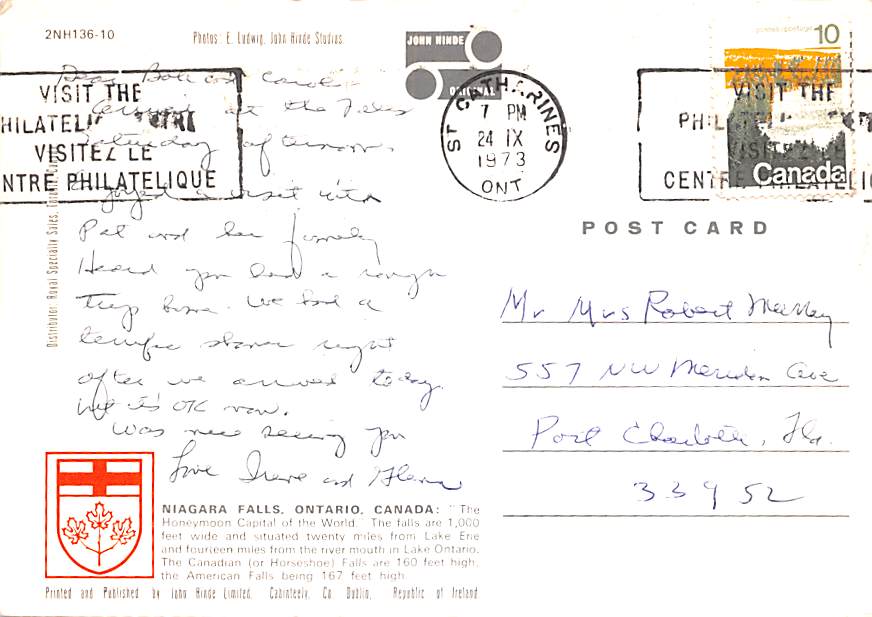 2NH136-10
Photos: E. Ludwig, John Hinde Studios
JOHN HINDE
ORIGINAL
10
Canada
VISIT THE
PHILATELI
VISITEZ LE
CENTRE PHILATELIQUE
ST. CATHARINES
7 PM
24 IX
1973
ONT
VISIT THE
HILATELI
VISITEZ LE
NTRE PHILATELIQUE
Dear Bob and Carol
Arrived at the Falls
Saturday afternoon
visit with
Pat and her family
Heard you had a rough
trip home. We had a
terrific storm right
after we arrived today.
but it's OK now.
Was nice seeing you
Love Irene and
POST CARD
Mr Mrs Robert
557 NW Meridian Ave
Port Charlotte, Fla.
33952
Distributor: Royal Specialty Sales,
NIAGARA FALLS, ONTARIO, CANADA: "The
Honeymoon Capital of the World. The falls are 1,000
feet wide and situated twenty miles from Lake Erie
and fourteen miles from the river mouth in Lake Ontario.
The Canadian (or Horseshoe) Falls are 160 feet high,
the American Falls being 167 feet high.
Printed and Published by John Hinde Limited, Cabinteely, Co Dublin, Republic of Ireland